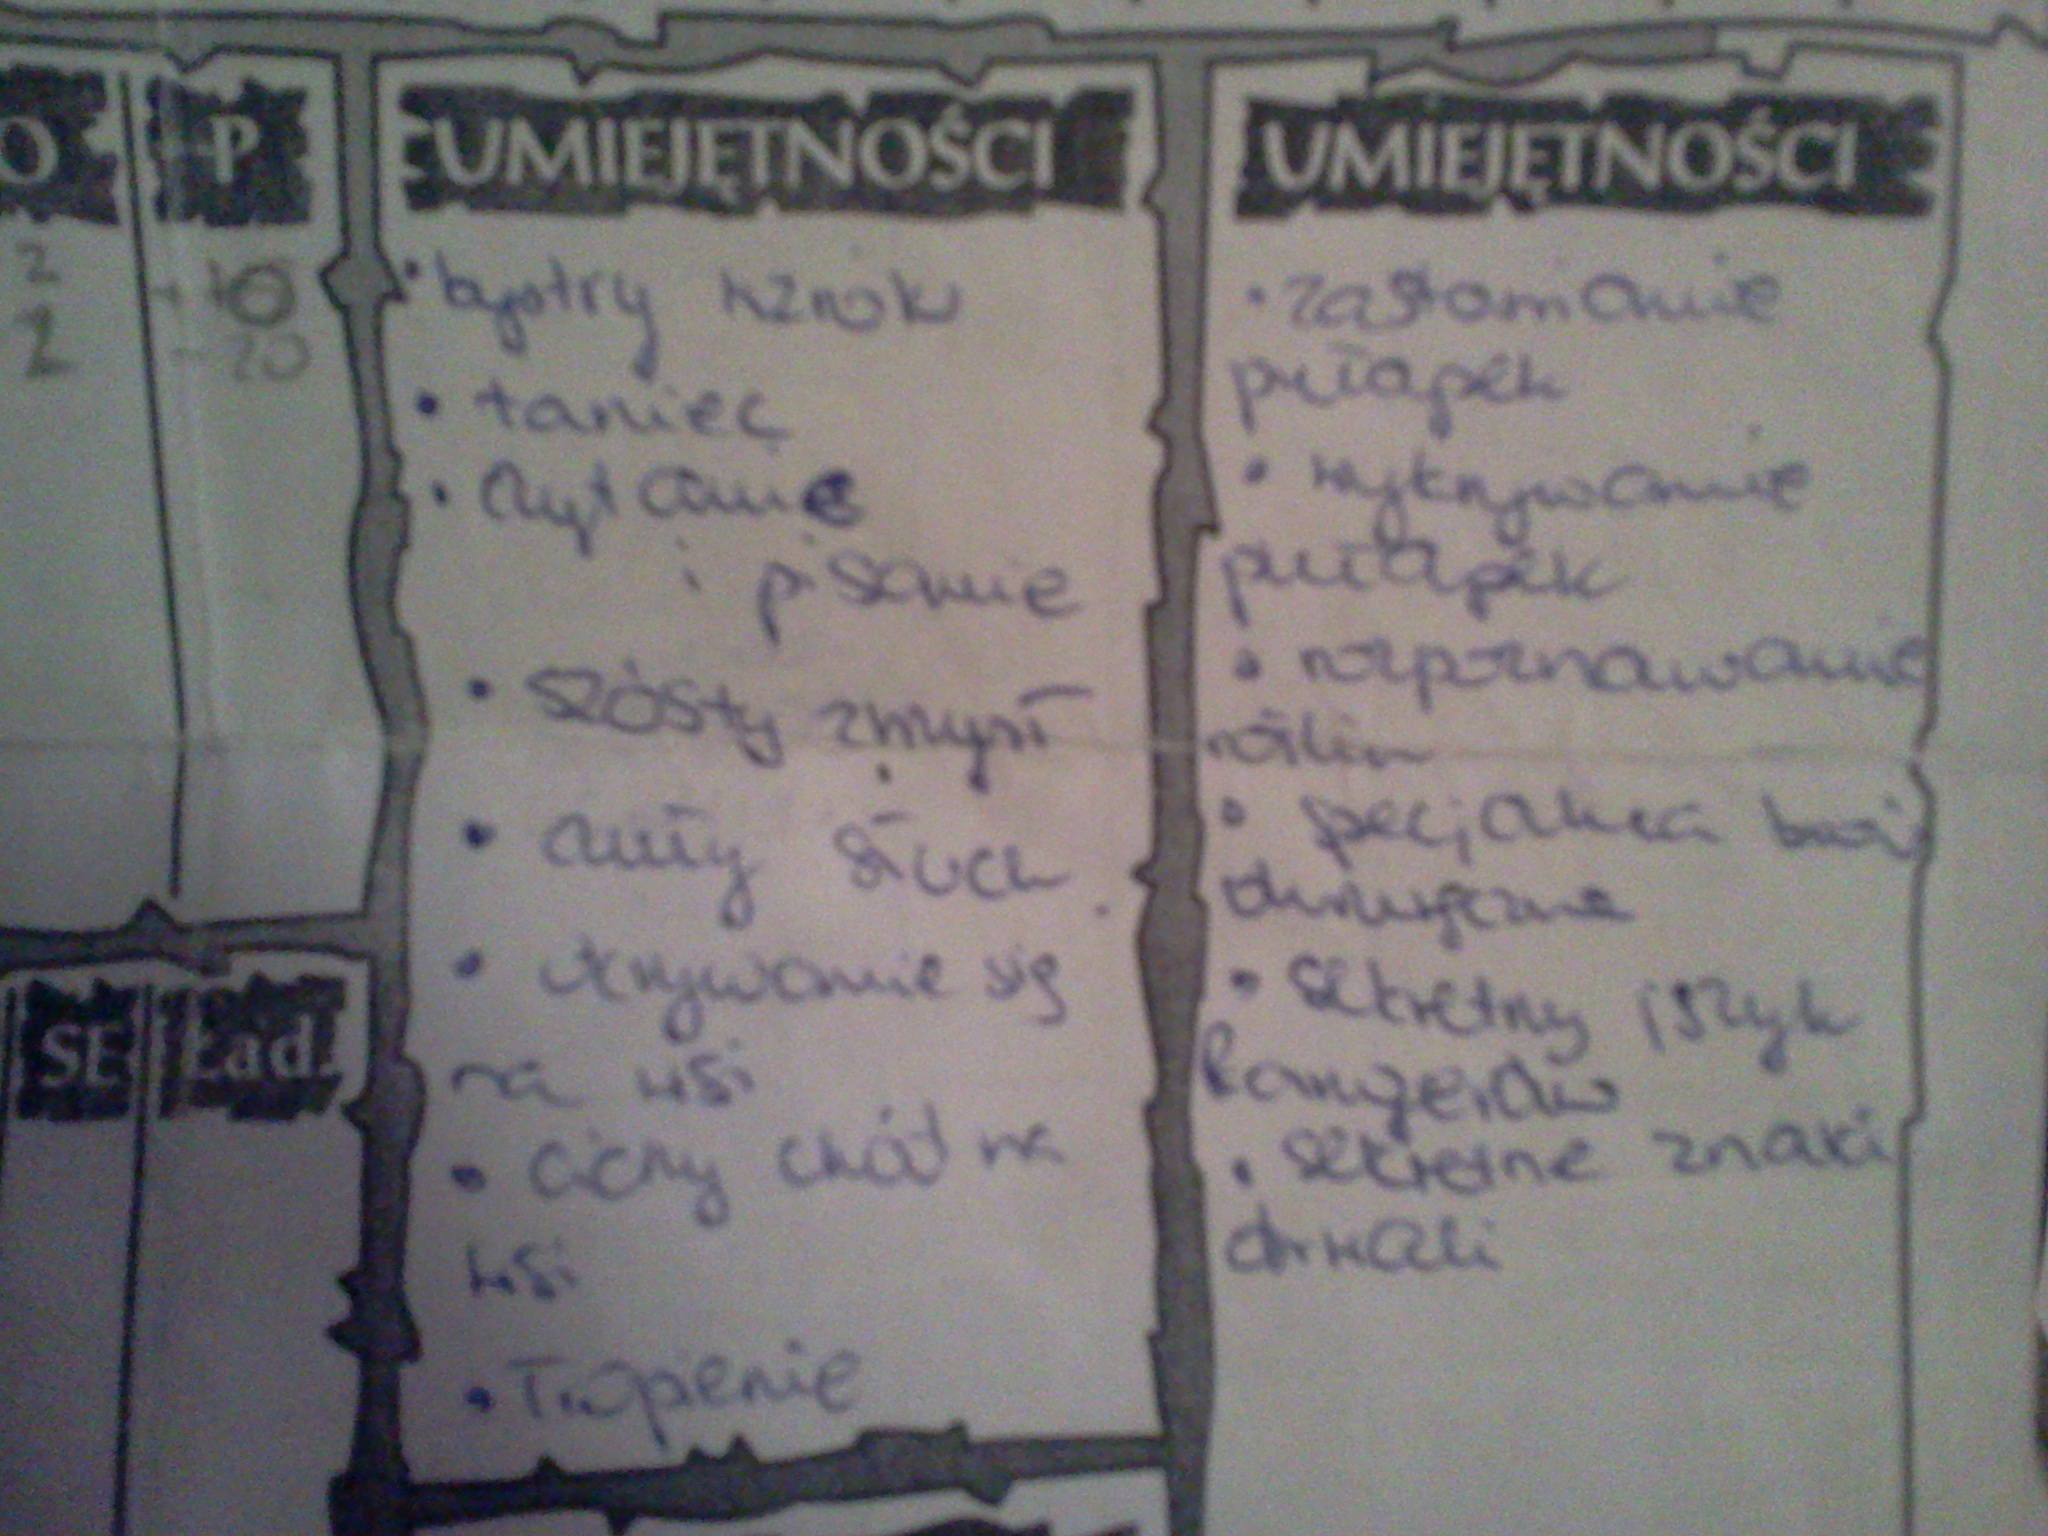 O P
2 +10
2 -20
UMIEJĘTNOŚCI
• bystry wzrok
• taniec
• czytanie
i pisanie
• szósty zmysł
• czuły słuch
• ukrywanie się
na wsi
• cichy chód na
wsi
• Tropienie
UMIEJĘTNOŚCI
pułapek
• wykrywanie
pułapek
• rozpoznawanie
roślin
• sekretny język
Rangerów
• sekretne znaki
drwali
SE Ład.